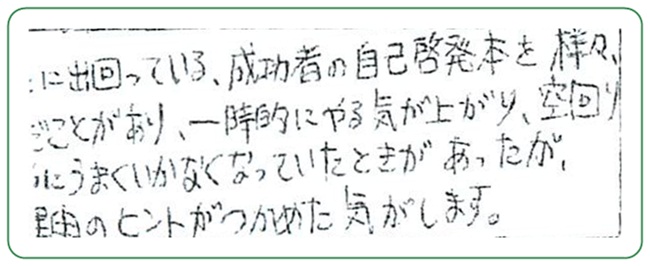 に出回っている、成功者の自己啓発本を様々、
ことがあり、一時的にやる気が上がり、空回り
にうまくいかなくなっていたときがあったが、
由のヒントがつかめた気がします。